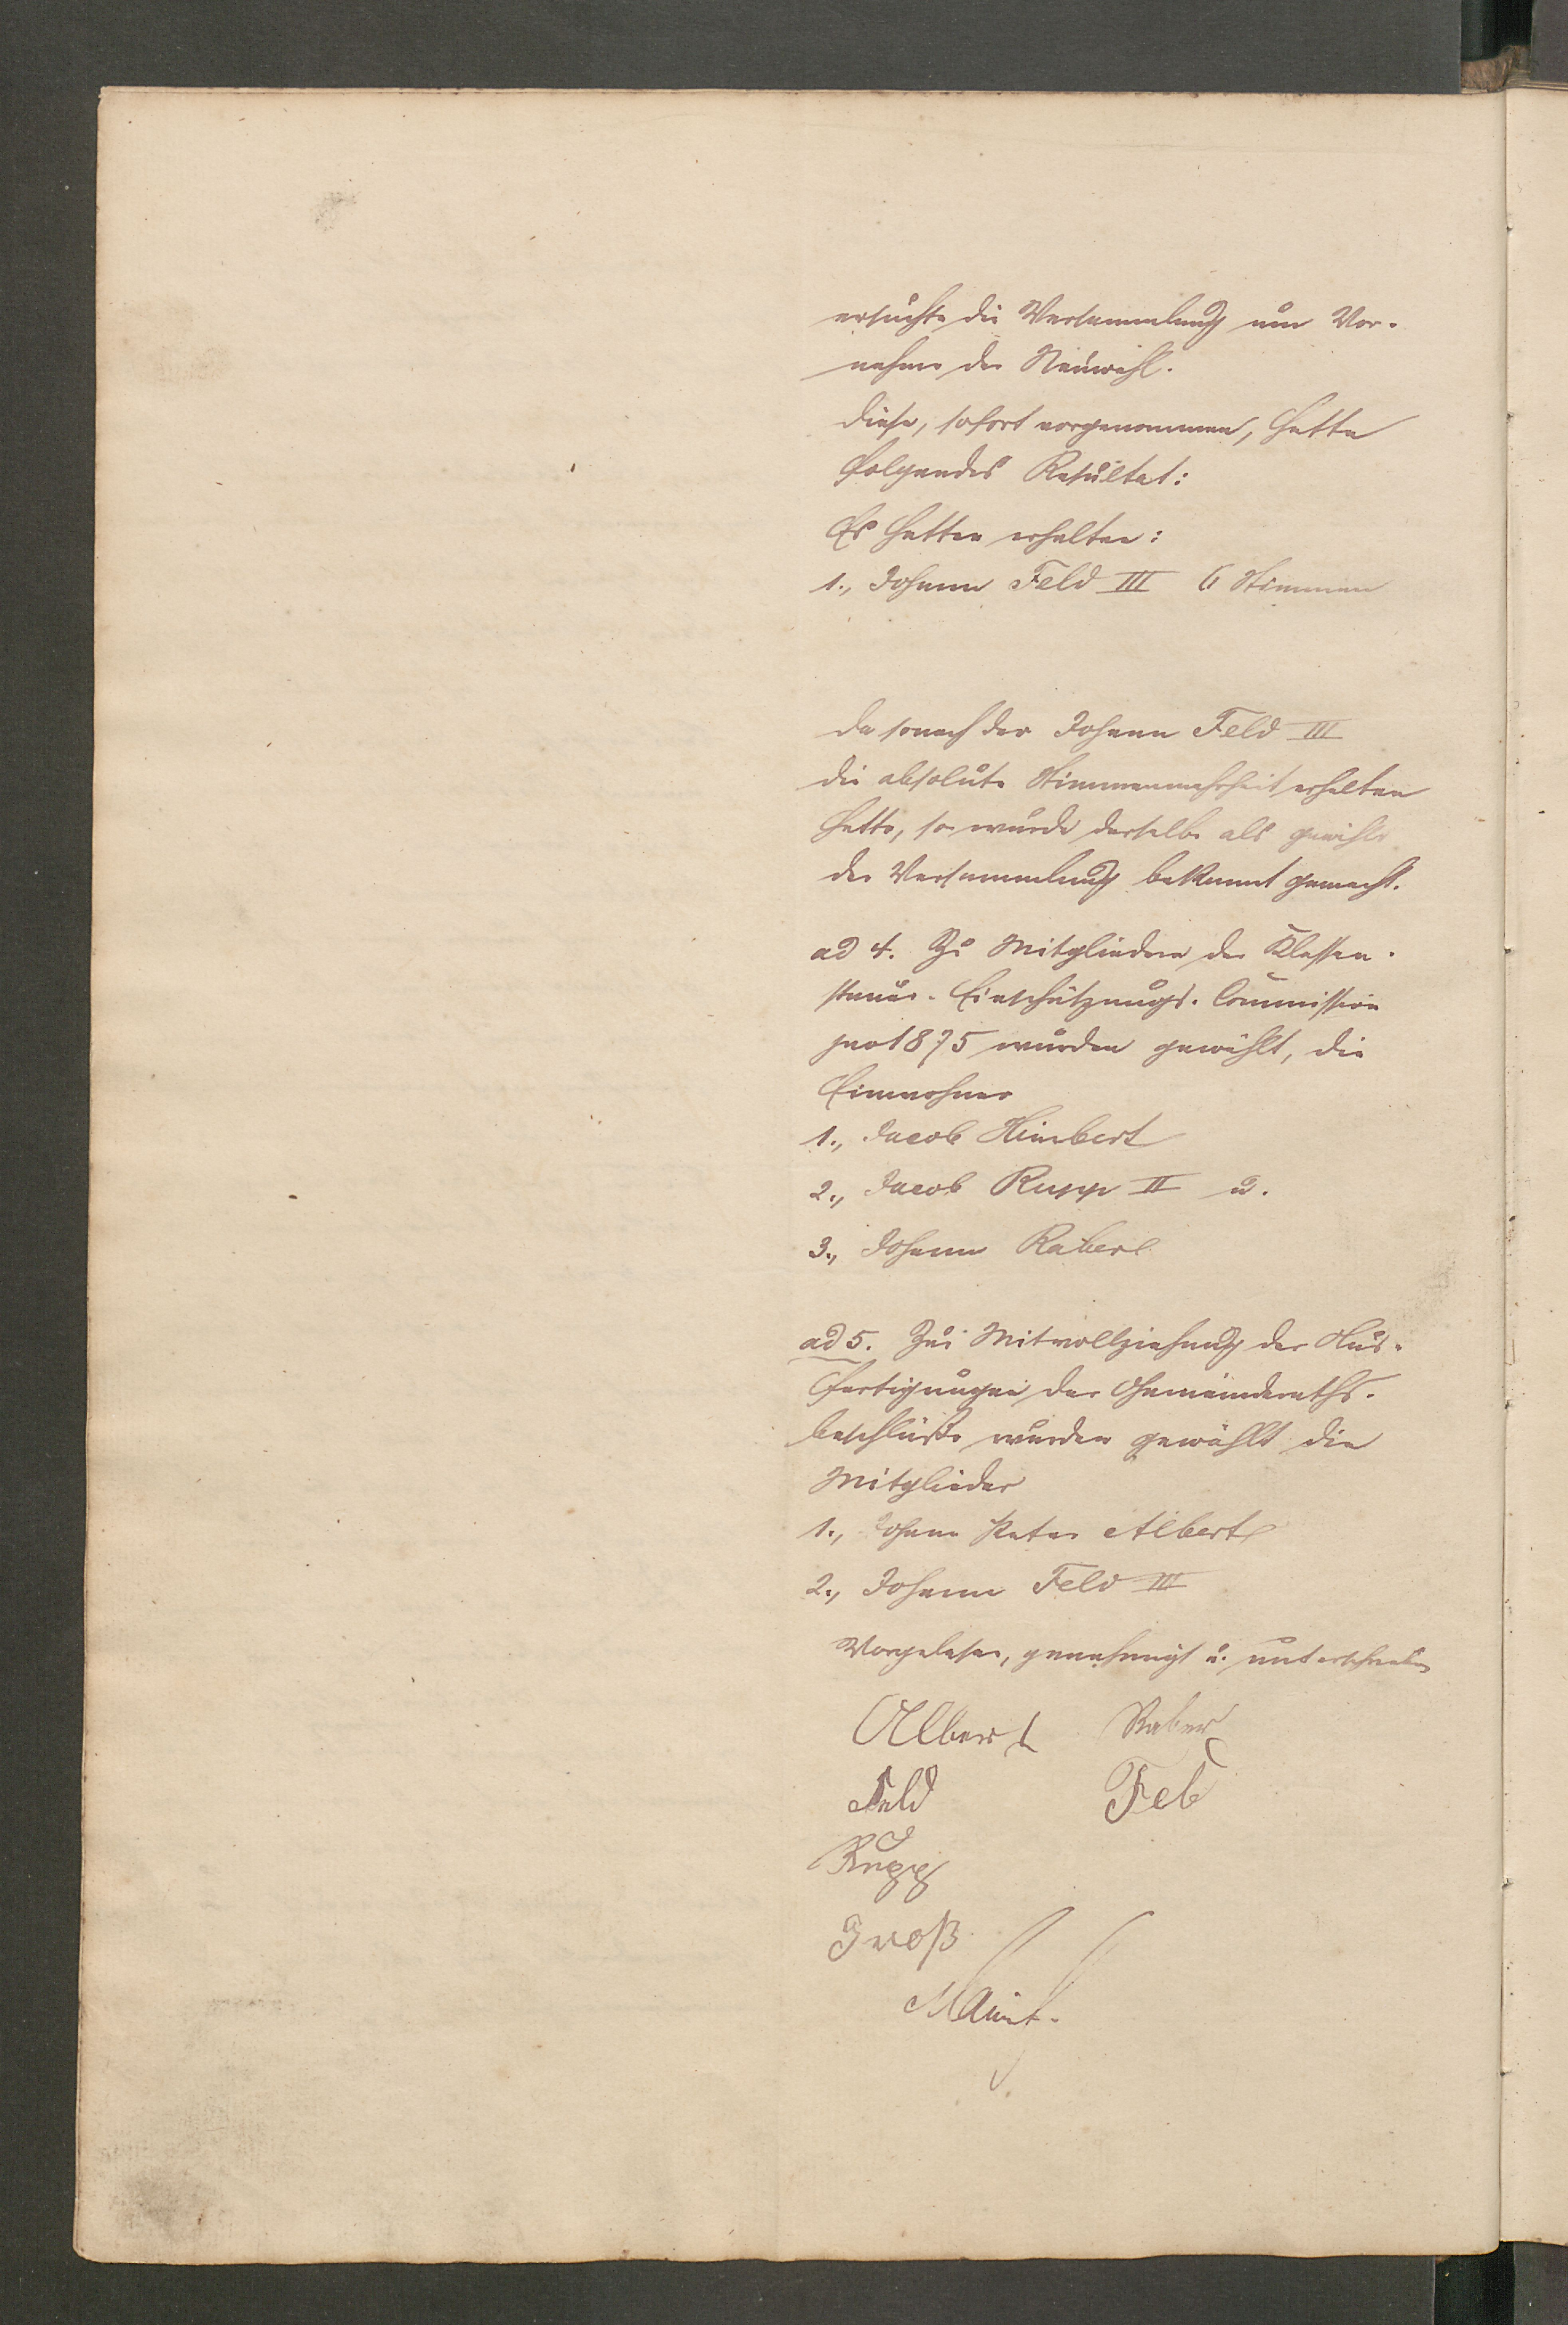 ersuchte die Versammlung um Vor-
nahme der Neuwahl.
Diese, sofort vorgenommen, hatte
folgendes Resultat:
Es hatten erhalten:
1., Johann Feld III 6 Stimmen
Da sonach der Johann Feld III
die absolute Stimmenmehrheit erhalten
hatte, so wurde derselbe als gewählt
der Versammlung bekannt gemacht.
ad 4. Zu Mitgliedern der Klassen-
steuer-Einschätzungs-Commission
pro 1875 wurden gewählt, die
Einwohner
1., Jacob Himbert
2., Jacob Rupp II u.
3., Johann Raber
ad 5. Zur Mitvollziehung der Aus-
fertigungen der Gemeinderaths-
beschlüsse wurden gewählt die
Mitglieder
1., Johann Peter Albert
2., Johann Feld III
Vorgelesen, genehmigt u. unterschrieben
Albert Raber
Feld Feld
Rupp
Groß